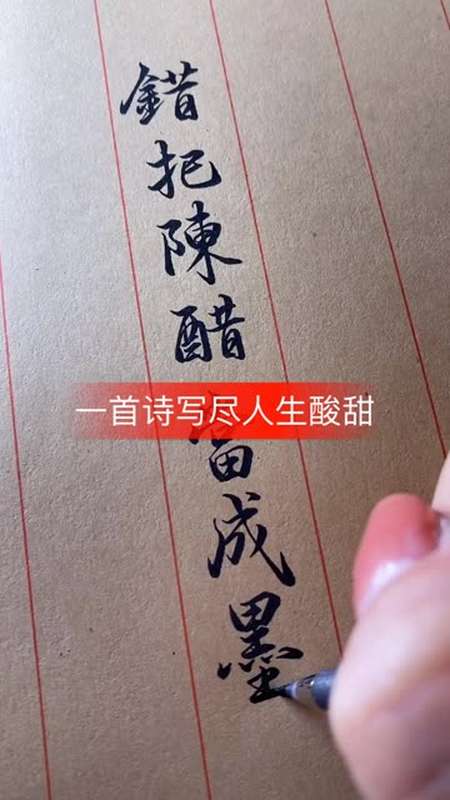 錯把陳醋當成墨
一首诗写尽人生酸甜